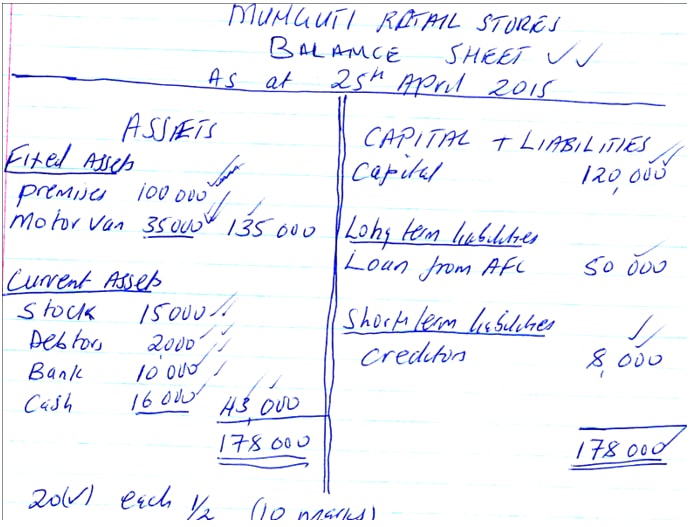 MUNGUTI RETAIL STORES
BALANCE SHEET ✓✓
As at 25th April 2015
ASSETS
Fixed Assets
premises 100 000
Motor van 35000 135 000
Current Assets
Stock 15000
Debtors 2000
Bank 10 000
Cash 16 000 43,000
178 000
CAPITAL + LIABILITIES
Capital 120,000
Long term liabilities
Loan from AFC 50 000
Short term liabilities
Creditors 8,000
178 000
20(✓) each 1/2 (10 marks)